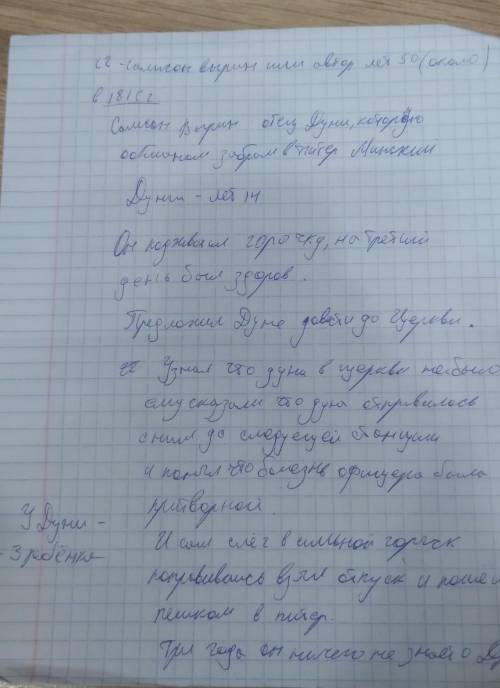 ГГ - самсон вырин или автор лет 50 (около)
в 1816 г
Самсон Вырин отец Дуни, которую
обманом забрал в питер Минский
Дуни - лет 14
Он подхватил горячку, на третий
день был здоров.
Предложил Дуне довести до Церкви.
ГГ Узнал что дуня в церкви не было
ему сказали что дуня отправилась
с ним до следущей станции
и понял что болезнь офицера была
притворной.
И сам слёг в сильной горячк
поправившись взял отпуск и поше
пешком в питер.
Три года он ничего не знает о Ду
У Дуни -
- 3 ребёнка